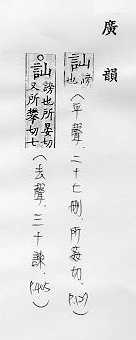 廣韻
訕 謗也 (平聲、二十七刪、所姦切. P.127)
訕 謗也所晏切又所攀切七 (去聲、三十諫. P.405)